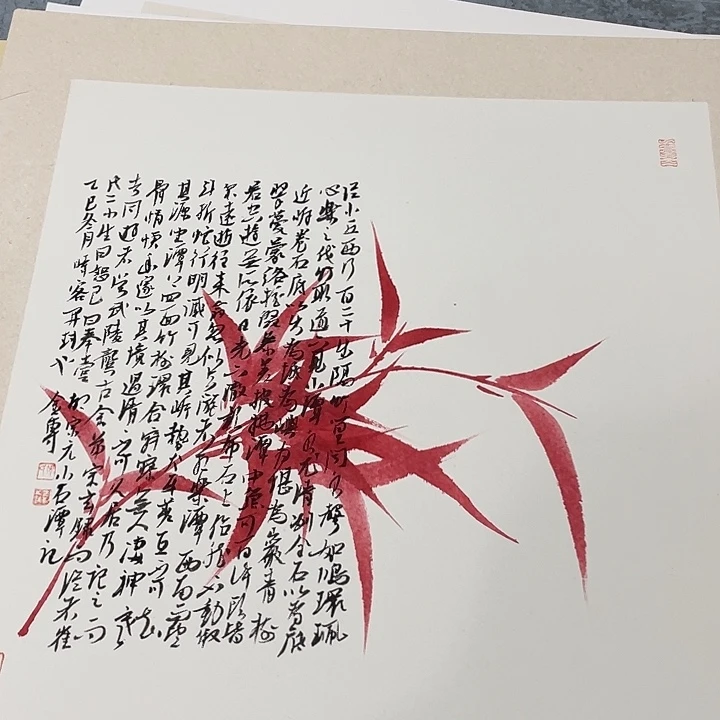 從小丘西行百二十步隔竹篁聞水聲如鳴環珮
心樂之伐竹取道下見小潭水尤清冽全石以為底
近岸卷石底以出為坻為嶼為堪為巖青樹
翠蔓蒙絡搖綴參差披拂潭中魚可百許頭皆
若空遊無所依日光下澈影布石上佁然不動俶
尔遠逝往來翕忽似與遊者相樂潭西南而望
斗折蛇行明滅可見其岸勢犬牙差互不可知
其源坐潭上四面竹樹環合寂寥無人凄神寒
骨悄愴幽邃以其境過清不可久居乃記之而
去同遊者吳武陵龔古余弟宗玄隸而從者崔
氏二小生曰恕己曰奉壹 柳宗元小石潭記
乙巳冬月時客開封